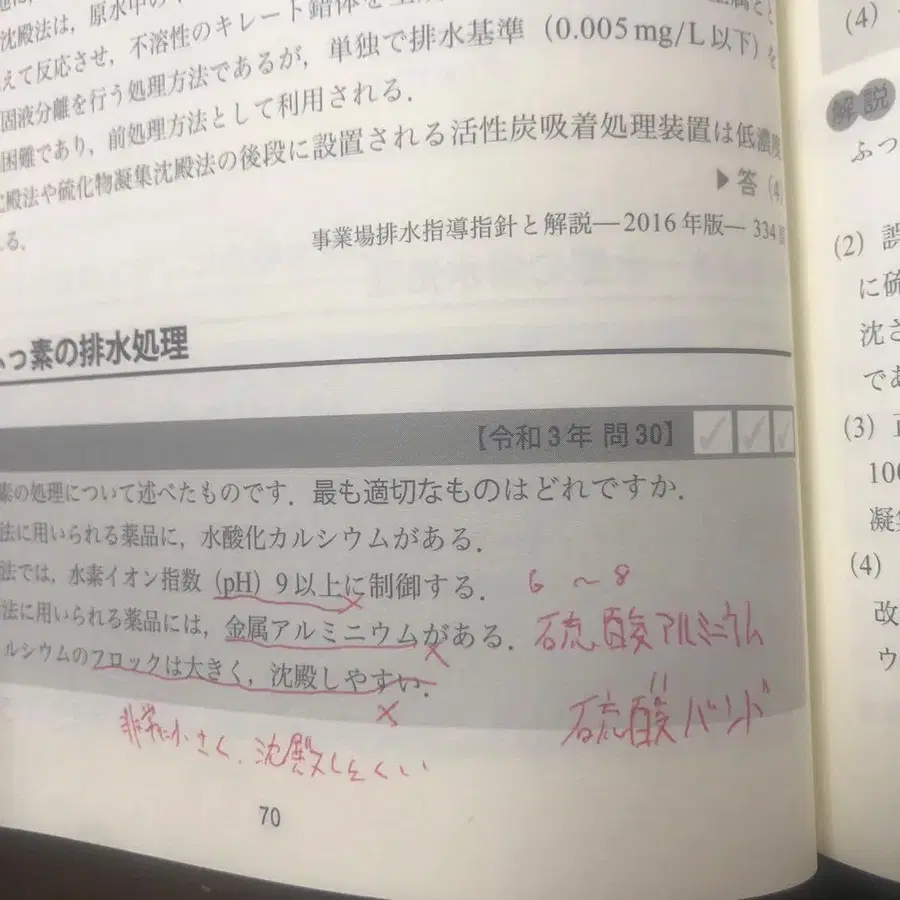 沈殿法は，原水中の
えて反応させ，不溶性のキレート錯体を
固液分離を行う処理方法であるが，単独で排水基準（0.005 mg/L 以下）を
困難であり，前処理方法として利用される．
殿法や硫化物凝集沈殿法の後段に設置される活性炭吸着処理装置は低濃度
る．
▶答（4）
事業場排水指導指針と解説―2016年版― 334
っ素の排水処理
【令和3年 問30】
素の処理について述べたものです．最も適切なものはどれですか．
法に用いられる薬品に，水酸化カルシウムがある．
法では，水素イオン指数（pH）9以上に制御する． 6 ～ 8
法に用いられる薬品には，金属アルミニウムがある． 硫酸アルミニウム
ルシウムのフロックは大きく，沈殿しやすい．
〃
硫酸バンド
非常に小さく、沈殿しにくい
70
(4)
解説
ふっ
(2) 誤
に硫
沈さ
であ
(3) 正
100
凝集
(4)
改
ウ